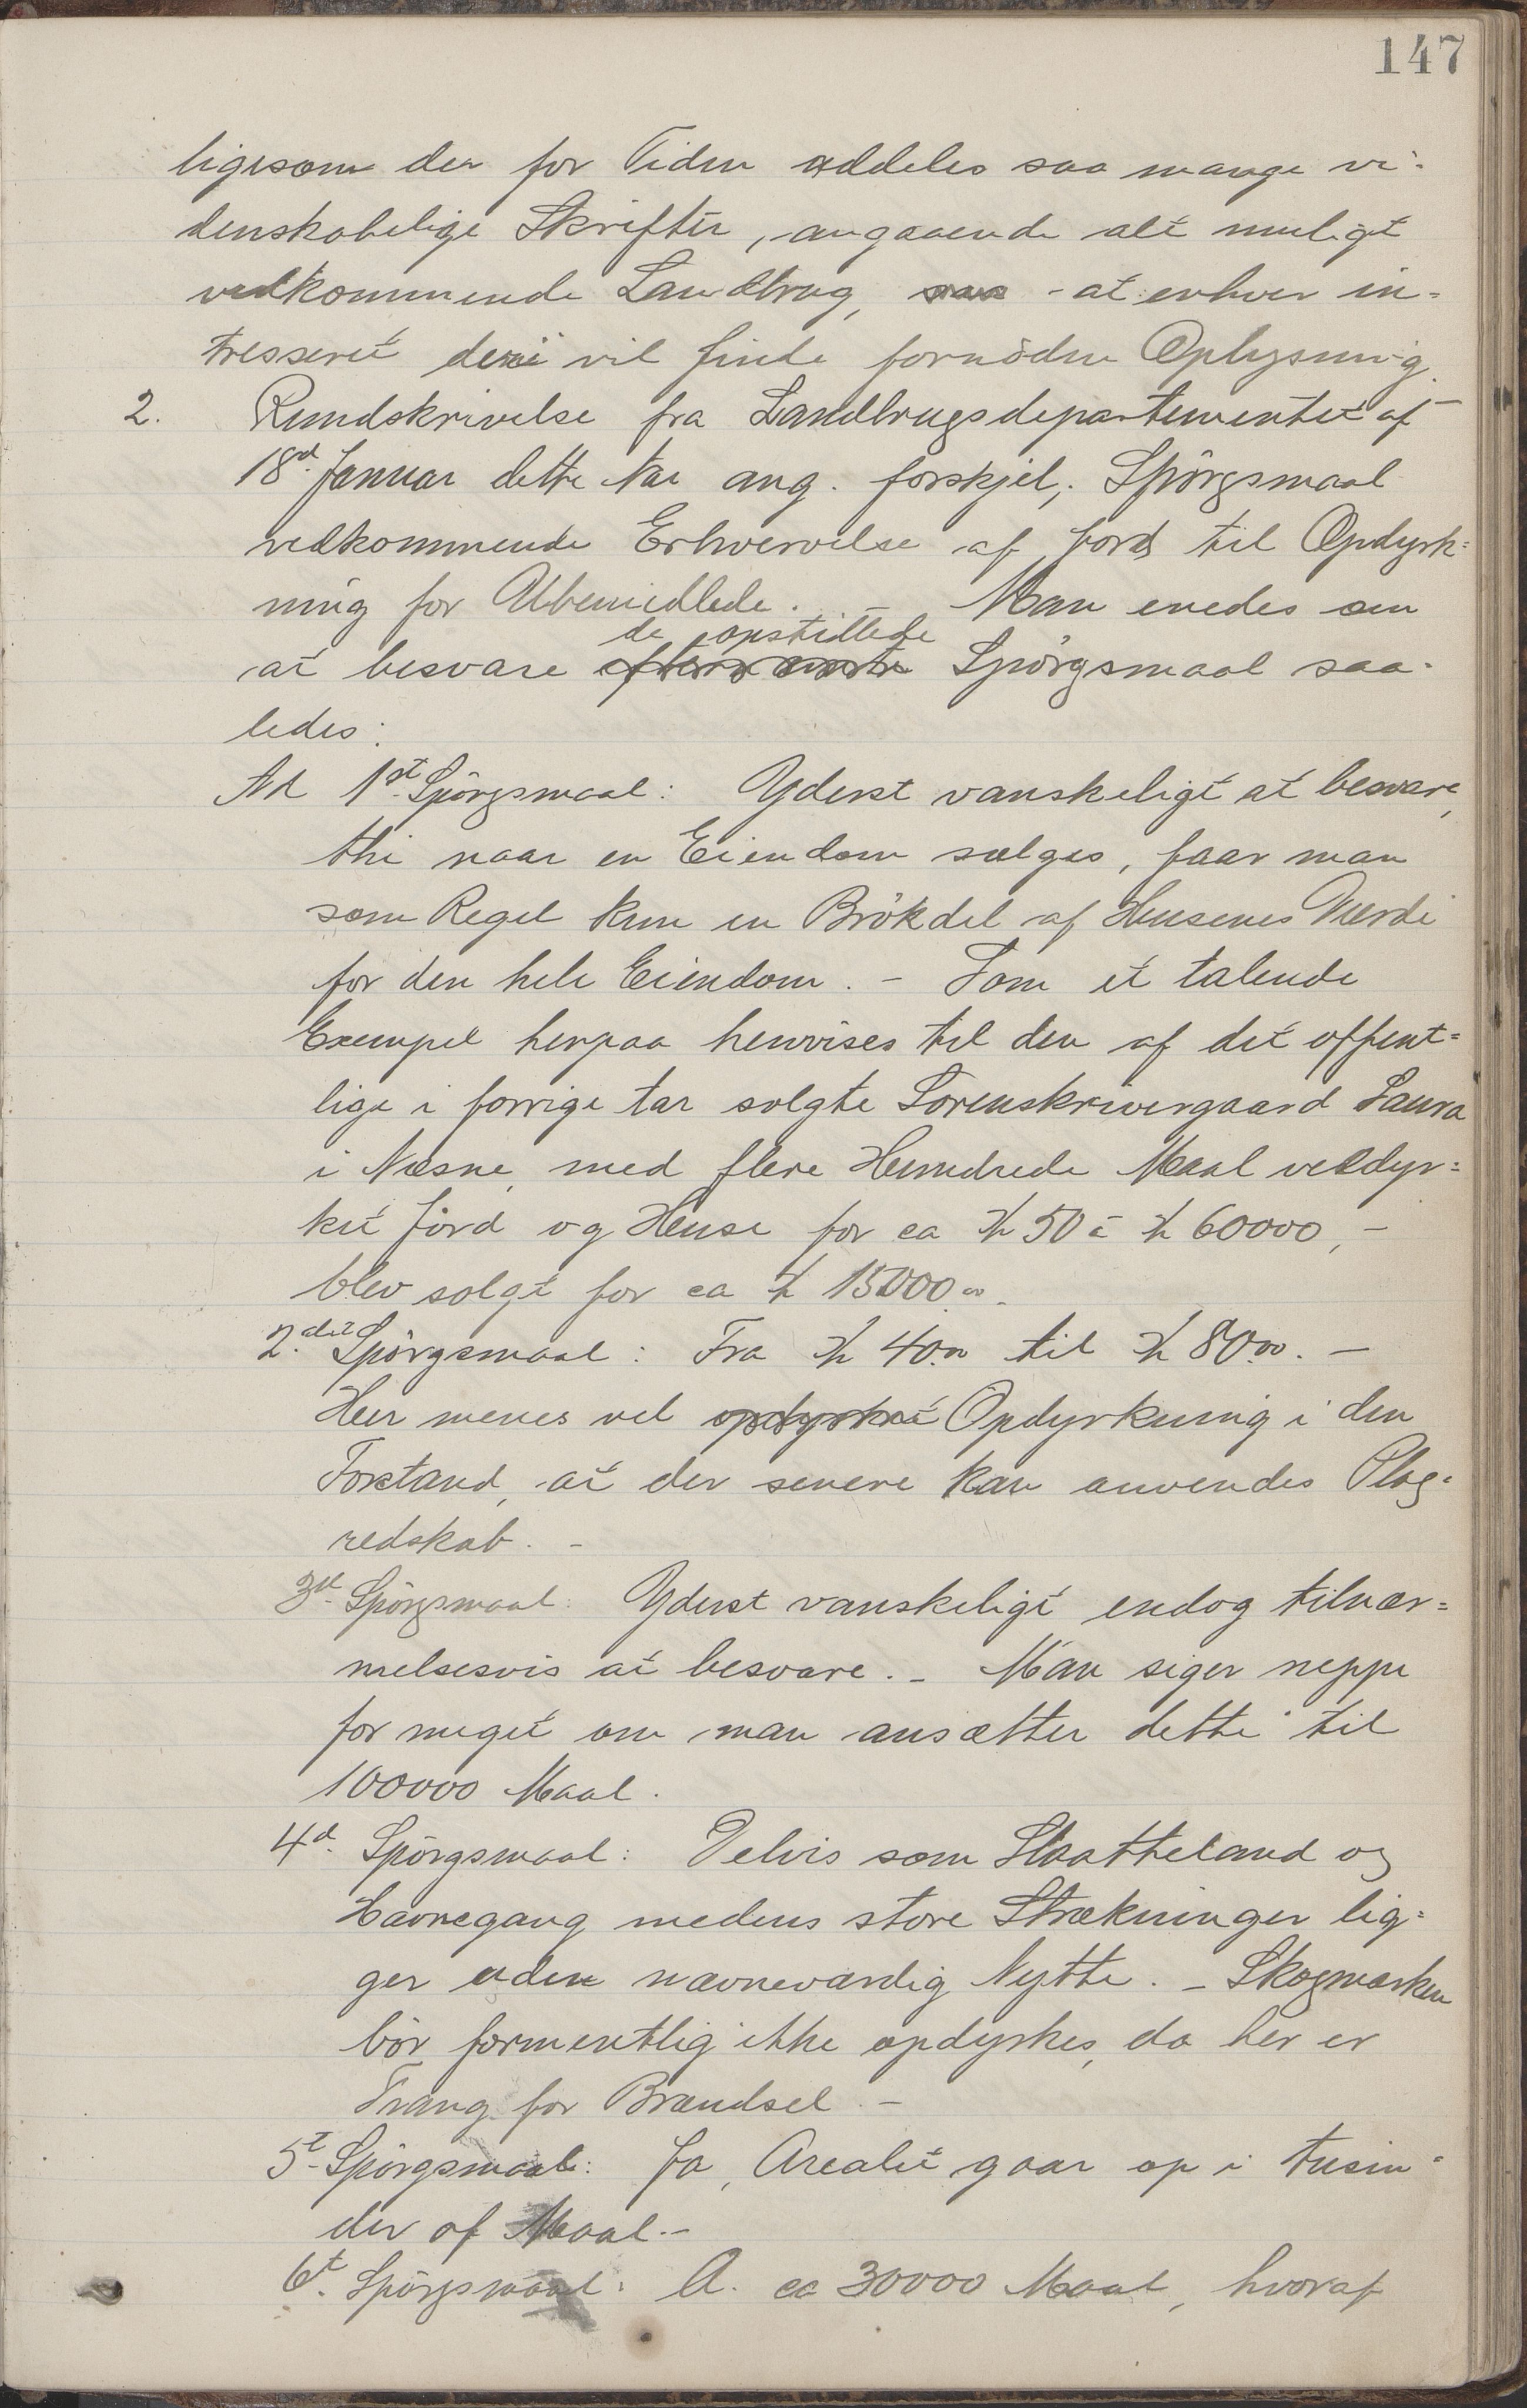 147
ligesom der for Tiden uddeles saa mange vi-
denskabelige Skrifter, angaaende alt muligt
vedkommende Landbrug, saa - at enhver in-
tresseret deri vil finde fornödne Oplysning.
2. Rundskrivelse fra Landbrugsdepartementet af
18d. Januar dette Aar ang. forskjel. Spörgsmaal
vedkommende Erhvervelse af Jord til Opdyrk-
ning for Ubemidlede. - Man enedes om
de opstillede
at besvare Spörgsmaal saa-
ledes:
Ad 1st Spörgsmaal: Yderst vanskeligt at besvare,
thi naar en Eiendom sælges, faar man
som Regel kun en Brökdel af Husenes Værdi
for den hele Eiendom. - Som et talende
Exempel herpaa henvises til den af det offent-
lige i forrige Aar solgte Sorenskrivergaard Saura
i Næsne, med flere Hundrede Maal veldyr-
ket Jord og Huse for ca Kr 50 à Kr 60000, -
blev solgt for ca Kr 15000.00.
2.det Spörgsmaal: Fra Kr 40.00 til Kr 80.00. -
Her menes vel opdyrket Opdyrkning i den
Forstand, at der senere kan anvendes Plog-
redskab. -
3d. Spörgsmaal: Yderst vanskeligt endog tilnær-
melsesvis at besvare. - Man siger neppe
for meget om man ansætter dette til
100000 Maal.
4d. Spörgsmaal: Delvis som Slaatteland og
Havnegang medens store Strækninger lig-
ger uden nævneværdig Nytte. - Skogmarken
bör formentlig ikke opdyrkes, da her er
Trang for Brændsel. -
5t. Spörgsmaal: Ja, Arealet gaar op i tusin-
der af Maal. -
6t. Spörgsmaal: A. ca 30000 Maal, hvoraf